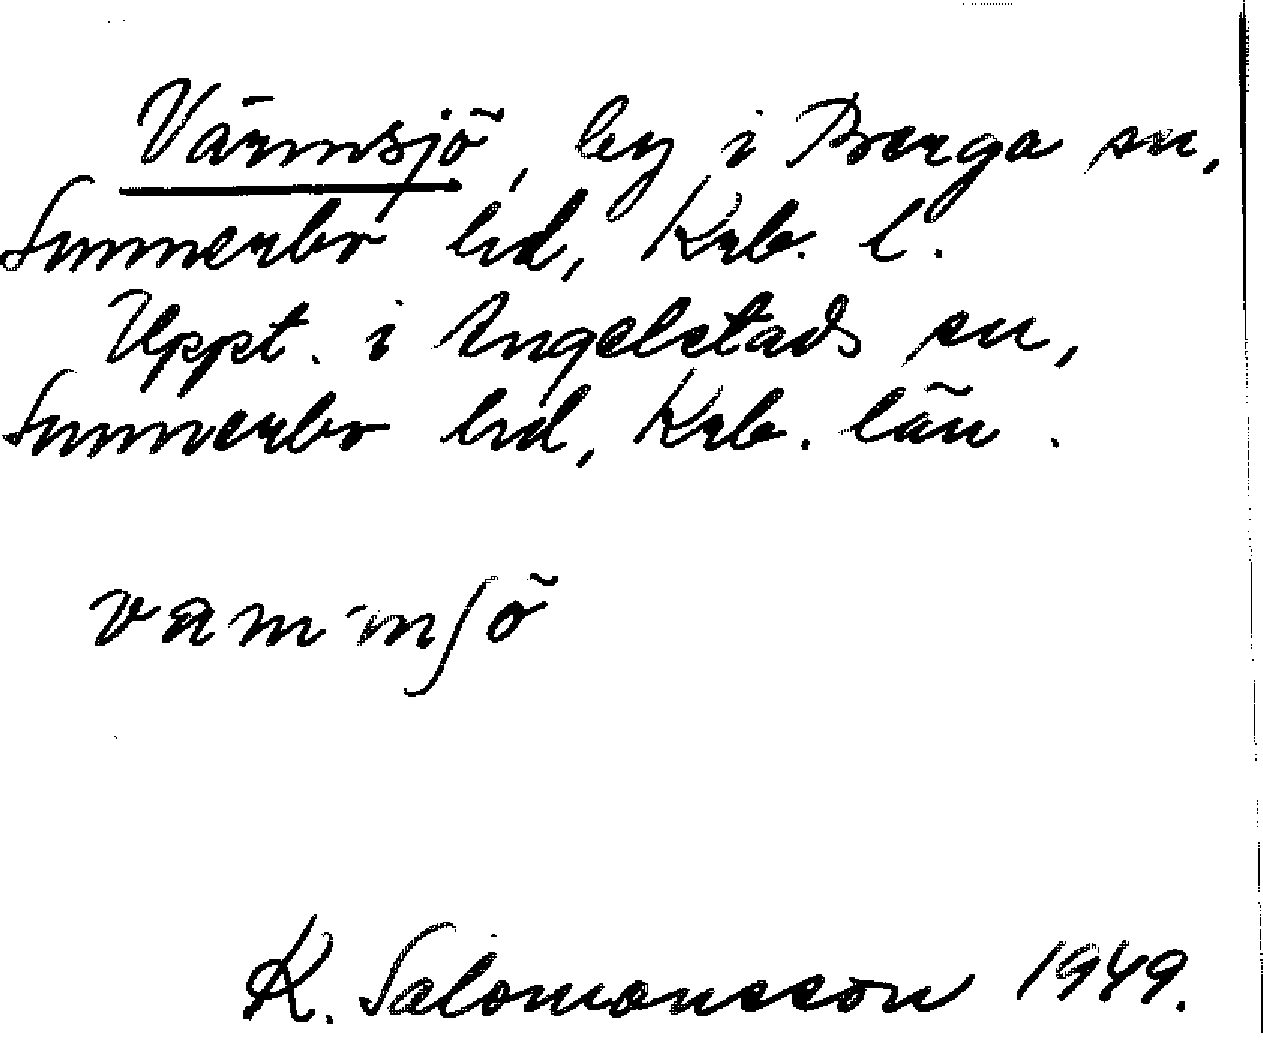 Värmsjö, by i Berga sn,
Sunnerbo hd, Krb. l.
Uppt. i Angelstads sn,
Sunnerbo hd, Krb. län.
K. Salomonsson 1949.